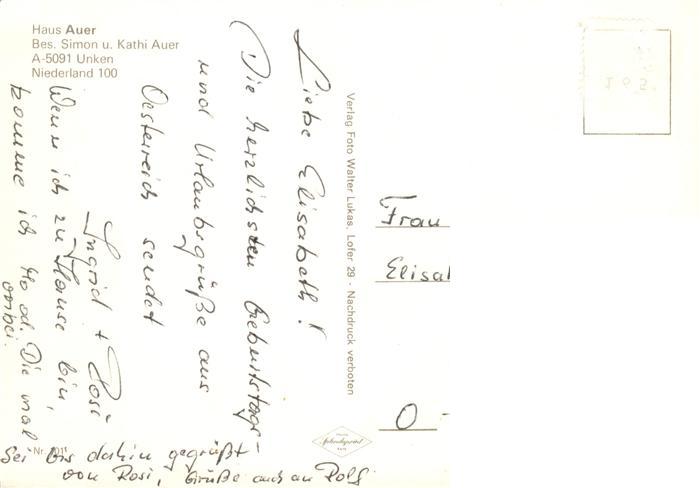 Haus Auer
Bes. Simon u. Kathi Auer
A-5091 Unken
Niederland 100
Liebe Elisabeth!
Die herzlichsten Geburtstags-
und Urlaubsgrüße aus
Oesterreich sendet
Ingrid + Rosi
Wenn ich zu Hause bin,
komme ich Mo od. Die mal
vorbei.
Sei bis dahin gegrüßt
von Rosi, Grüße auch an Rolf
Verlag Foto Walter Lukas, Lofer 29 - Nachdruck verboten
Frau
Elisa
O -